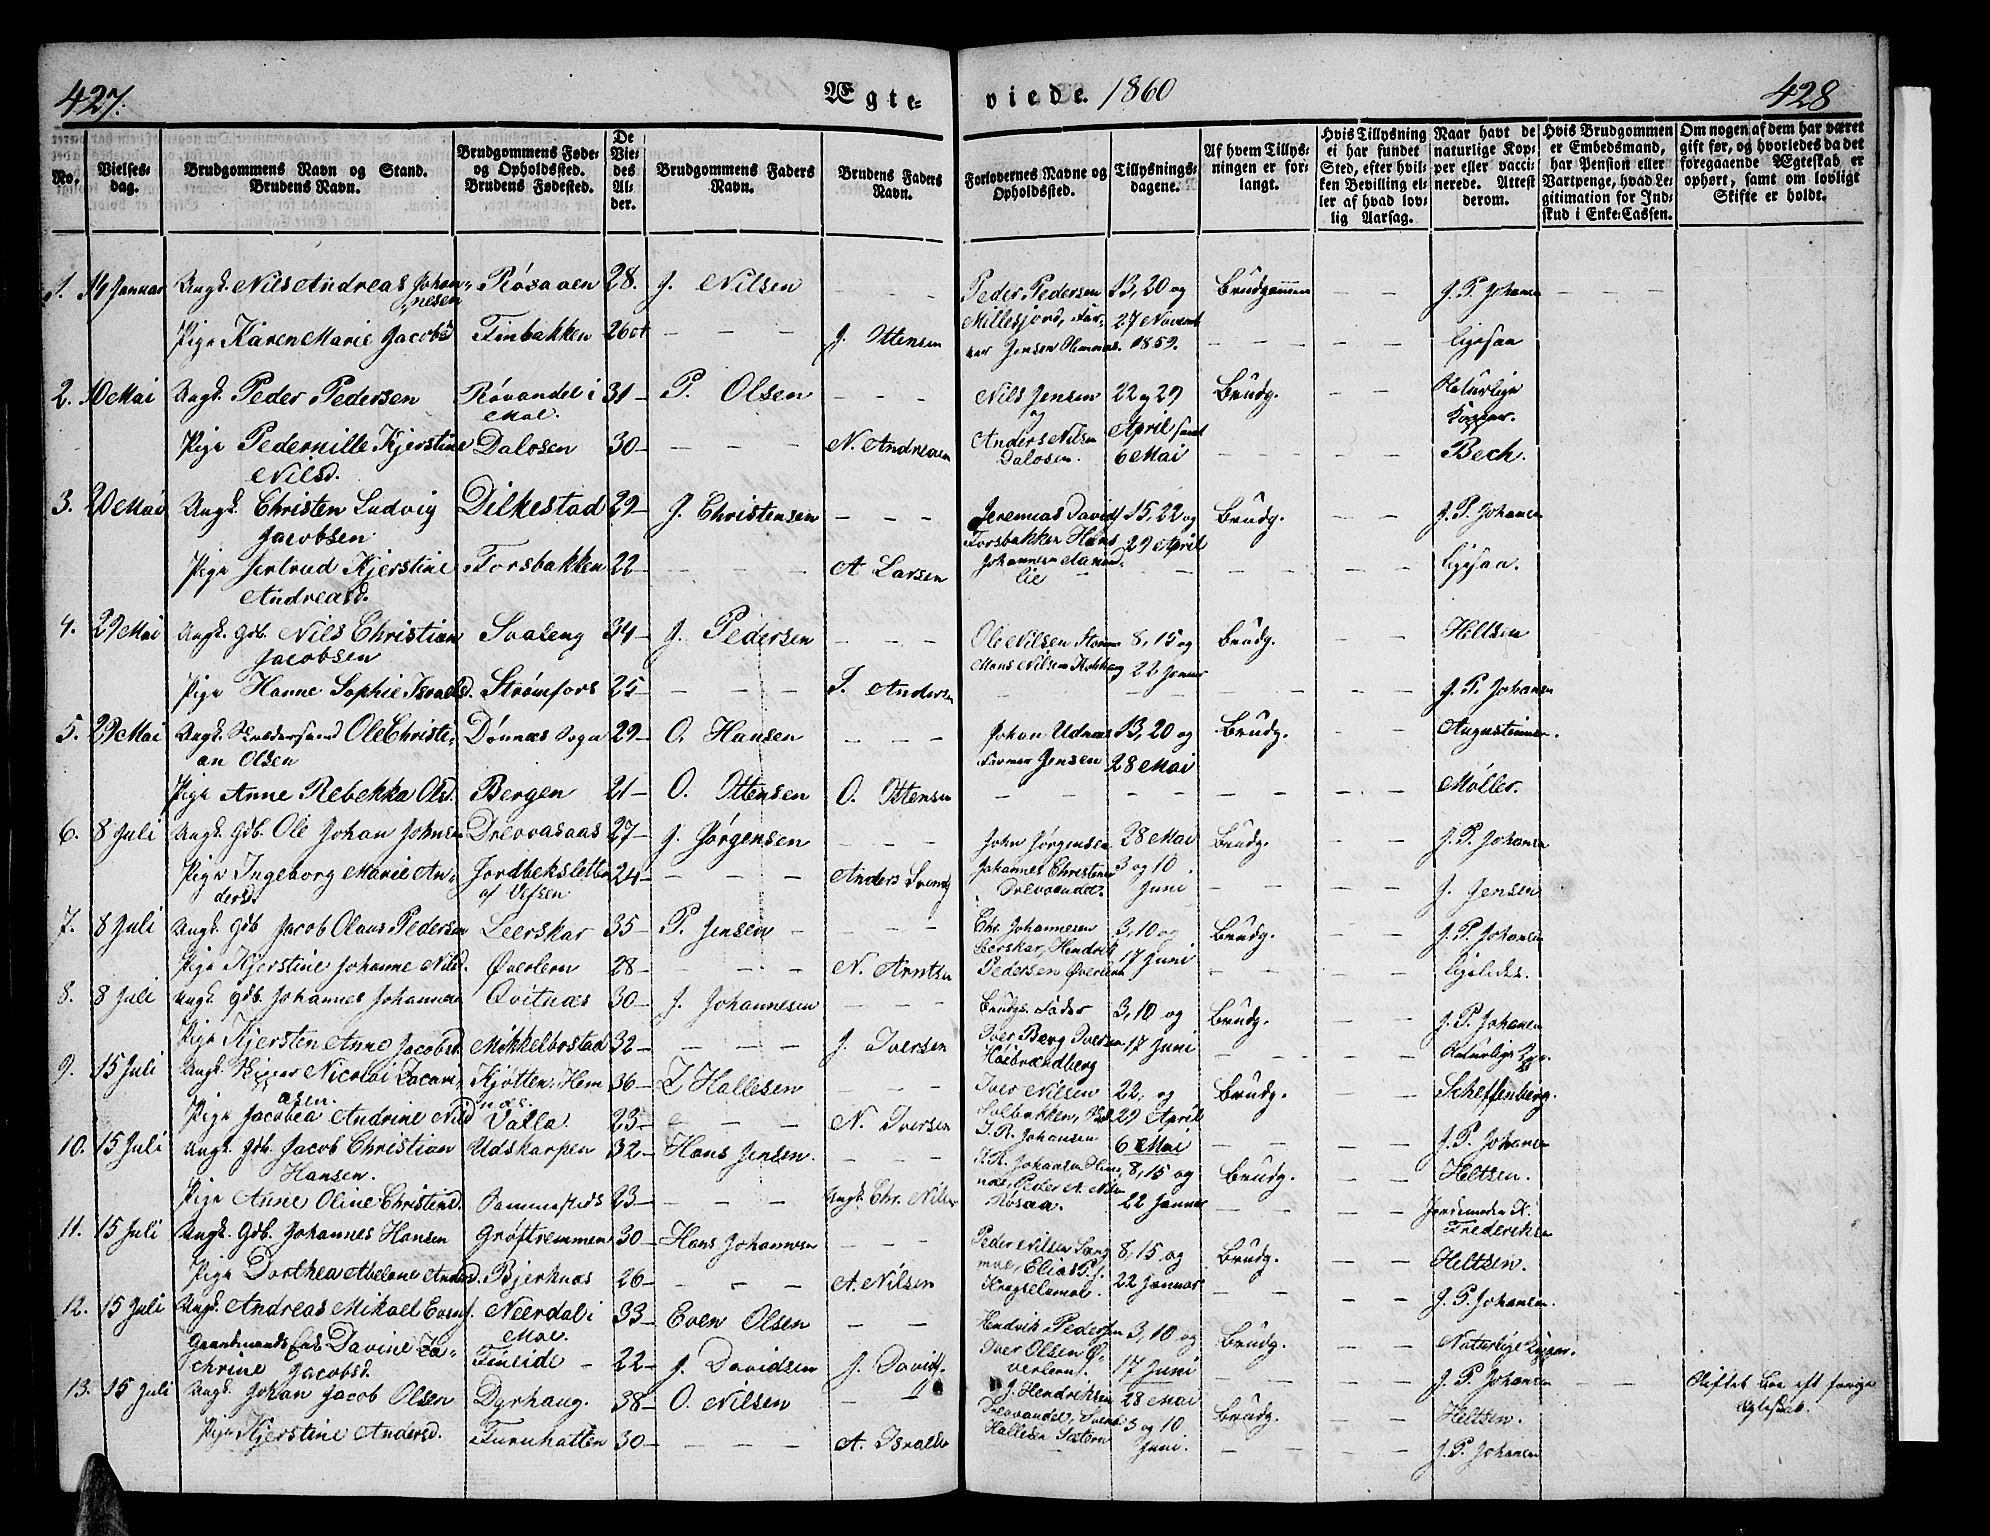 427.
Ægte-
viede. 1860
428
No.
Vielses-
dag.
Brudgommens Navn og Stand.
Brudens Navn.
Brudgommens Føde-
og Opholdssted.
Brudens Fødested.
De
Vie-
des
Al-
der.
Brudgommens Faders
Navn.
Brudens Faders
Navn.
Forlovernes Navne og
Opholdssted.
Tillysnings-
dagene.
Af hvem Tillys-
ningen er for-
langt.
Hvis Tillysning
ei har fundet
Sted, efter hvil-
ken Bevilling el-
ler af hvad lov-
lig Aarsag.
Naar havt de
naturlige Kop-
per eller vacci-
nerede. Attest
derom.
Hvis Brudgommen
er Embedsmand,
har Pension eller
Vartpenge, hvad Le-
gitimation for Ind-
skud i Enke-Cassen.
Om nogen af dem har været
gift før, og hvorledes da det
foregaaende Ægteskab er
ophørt, samt om lovligt
Skifte er holdt.
1. 14 Januar Ungk. Nils Andreas Johan-
nesen
Røsaaen 28. J. Nilsen
Peder Pedersen 13, 20 og Brudgommen J. P. Johansen
Pige Karen Marie Jacobsd Finbakken 26 J. Ottensen
27 Novemb
1859.
ligesaa
2. 10 Mai Ungk. Peder Pedersen Røvandel i 31 P. Olsen
Moe.
Nils Jensen 22 og 29 Brudg. Naturlige
og Kopper.
Pige Pedernille Kjerstine Dalosen 30 N. Andreasen
Nilsd.
Anders Nilsen April samt
Dalosen. 6 Mai Bech.
3. 20 Mai Ungk. Christen Ludvig Dilkestad 29 J. Christensen
Jacobsen
Jeremias Davids 15, 22 og Brudg. J. P. Johansen
Forsbakken Hans 29 April
Pige Jertrud Kjerstine Forsbakken 22 A Larsen
Andreasd.
Johannesen ligesaa.
lie
4. 29 Mai Ungk. Gdb. Nils Christian Svaleng 34 J. Pedersen
Jacobsen
Ole Nilsen 8, 15 og Brudg. Heltsen
Mons Nilsen 22 Januar
Pige Hanne Sophie Israelsd. Strømfors 25 Andersen
J. P. Johansen
5. 29 Mai Ungk. Ole Christi-
an Olsen
Dønnæs Sogn 29 O. Hansen
Johan Udnæs 13, 20 og Brudg. Augustinusen.
Jensen 28 Mai
Pige Anne Rebekka Olsd. Bergen 21 O. Ottensen O. Ottensen
Møller.
6. 8 Juli Ungk. Gdb. Ole Johan Johnsen Drevvasaas 27 J. Jørgensen
John Jørgensen 28 Mai Brudg. J. P. Johansen
Pige Ingeborg Marie An-
dersd.
Jordbeksletten 24 Anders
af Vefsen
Johannes Christensen 3 og 10
Drevvandet. Juni J. Jensen
7. 8 Juli Ungk. Gdb Jacob Olaus Pedersen Leerskar 35 P. Jensen
Chr. Johannesen 3, 10 og Brudg. J. P. Johansen
Leerskar, Hendrik 17 Juni
Pige Kjerstine Johanne Nilsd. Øverleren 28 N. Arntsen
Pedersen Øverleren ligeledes.
8. 8 Juli Ungk. Gdb. Johannes Johannesen Qvitnæs 30 J. Johannesen
Brudgs. Fader 3, 10 og Brudg. J. P. Johansen
Pige Kjersten Anne Jacobsd. Mikkelbostad 32 J. Iversen
Iver Berg Iversen 17 Juni
Høibrændberg Naturlige
9. 15 Juli Ungk. Nicolai Zacari-
asen.
Kjøtten, Hem 36 Z Hallesen
næs.
Iver Nilsen 22, og Brudg. Scheffenberg.
Solbakken, 29 April
Pige Jacobea Andrine Nilsd Valla 23 N. Iversen
J. R. Johansen 6 Mai J. P. Johansen
10. 15 Juli Ungk. Gdb. Jacob Christian Udskarpen 32 Hans Jensen.
Hansen.
J. R. Johansen Hem 8, 15 og Brudg. Heltsen.
næs, Peder A. Nils
Pige Anne Oline Christensd. 23 Ungk. Chr. Nilsen
Røsaa. 22 Januar
Frederiksen
11. 15 Juli Ungk. Gdb. Johannes Hansen Grøftremmen 30 Hans Johannesen
Peder Nilsen 8, 15 og Brudg. Heltsen.
moe, Elias P. J.
Pige Dorthea Abelone Andersd. Bjerknæs 26 A. Nilsen
22 Januar J. P. Johansen.
12. 15 Juli Ungk. Andreas Mikael Evens. Neerdal i 33 Even Olsen
Moe.
Hendrik Pedersen 3, 10 og Brudg. Naturlige Kopper.
Gaardmands Enke Davine Za-
chrine Jacobsd.
Fineide 22 J. Davidsen J. Davids.
Iver Olsen Ø-
verleren. 17 Juni J. P. Johansen
Skiftet
Ægteskab.
13. 15 Juli Ungk. Johan Jacob Olsen Dyrhaug. 38 O. Nilsen
J. Hendriksen 28 Mai Brudg. Heltsen.
Drevvandet, 3 og 10
Pige Kjerstine Andersd. Furuhatten 30 A. Israels
Juni. J. P. Johansen